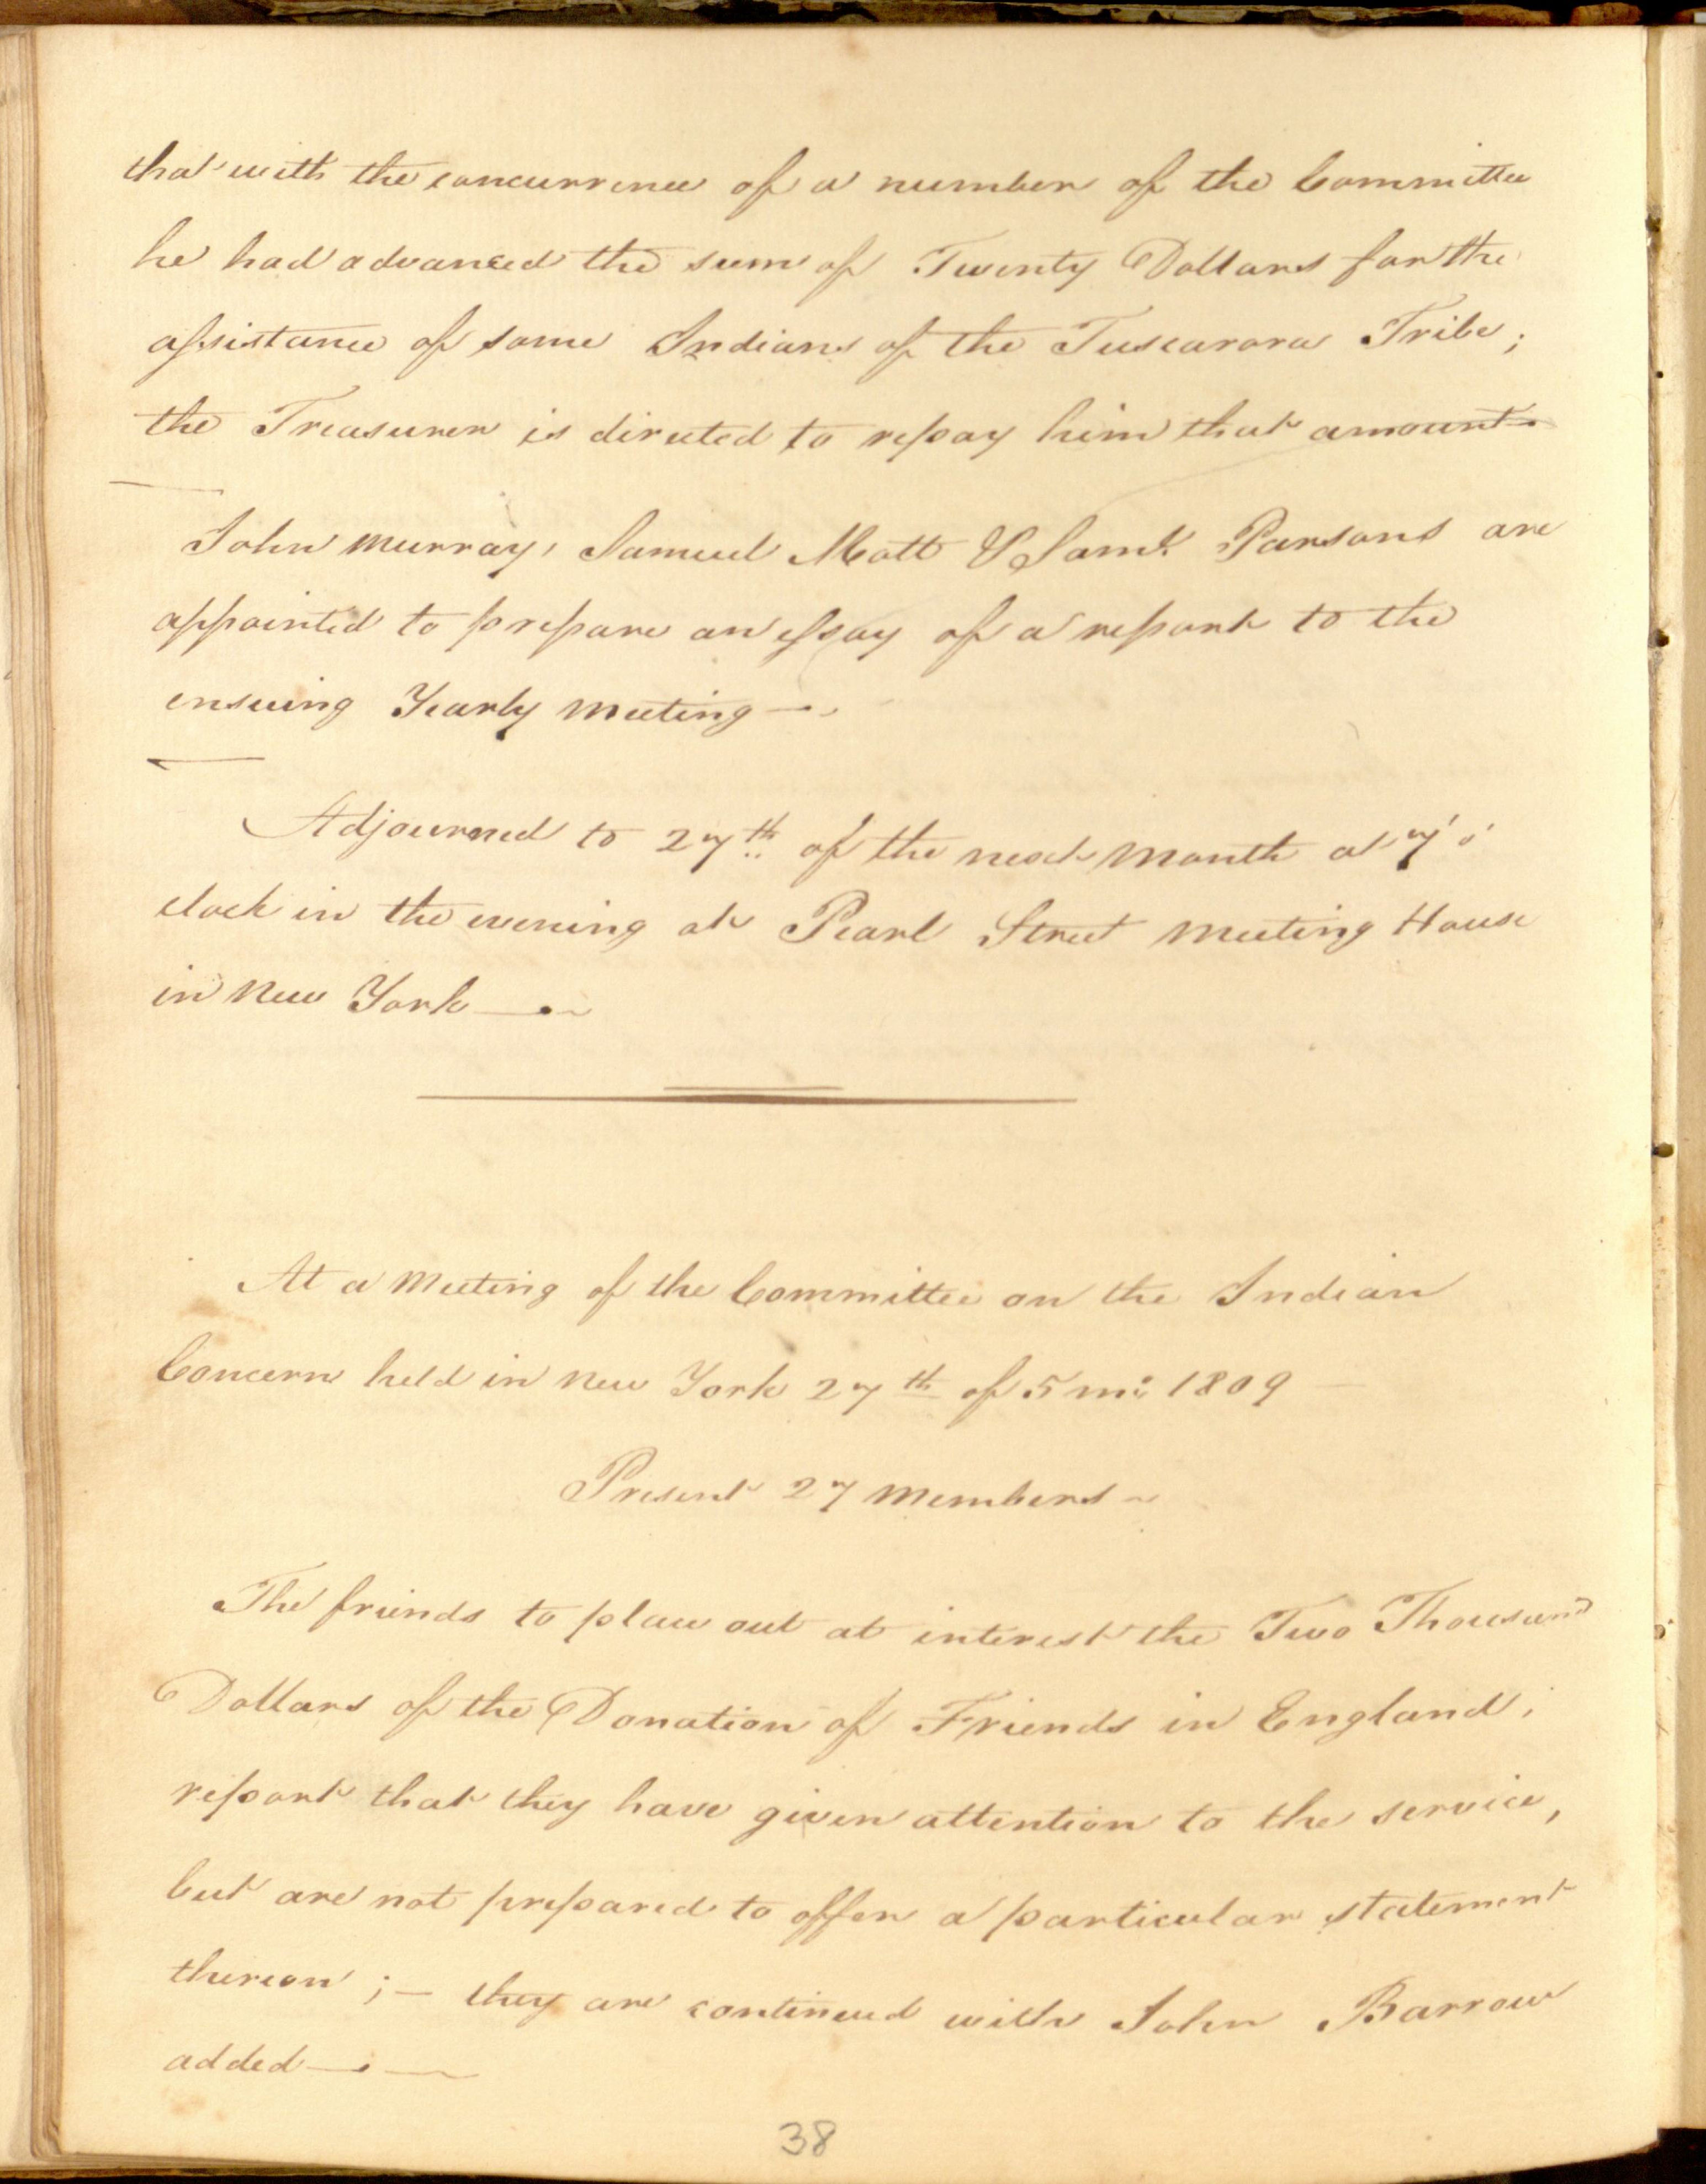 that with the concurrence of a number of the Committee
he had advanced the sum of Twenty Dollars for the
assistance of some Indians of the Tuscarora Tribe;
the Treasurer is directed to repay him that amount
John Murray, Samuel Mott & Saml. Parsons are
appointed to prepare an essay of a report to the
ensuing Yearly Meeting —
Adjourned to 27th of the next Month at 7 o'
clock in the evening at Pearl Street Meeting House
in New York —
At a Meeting of the Committee on the Indian
Concern held in New York 27th of 5 mo: 1809
Present 27 Members
The friends to place out at interest the Two Thousand
Dollars of the Donation of Friends in England;
report that they have given attention to the service,
but are not prepared to offer a particular statement
thereon; — they are continued with John Barrow
added —
38